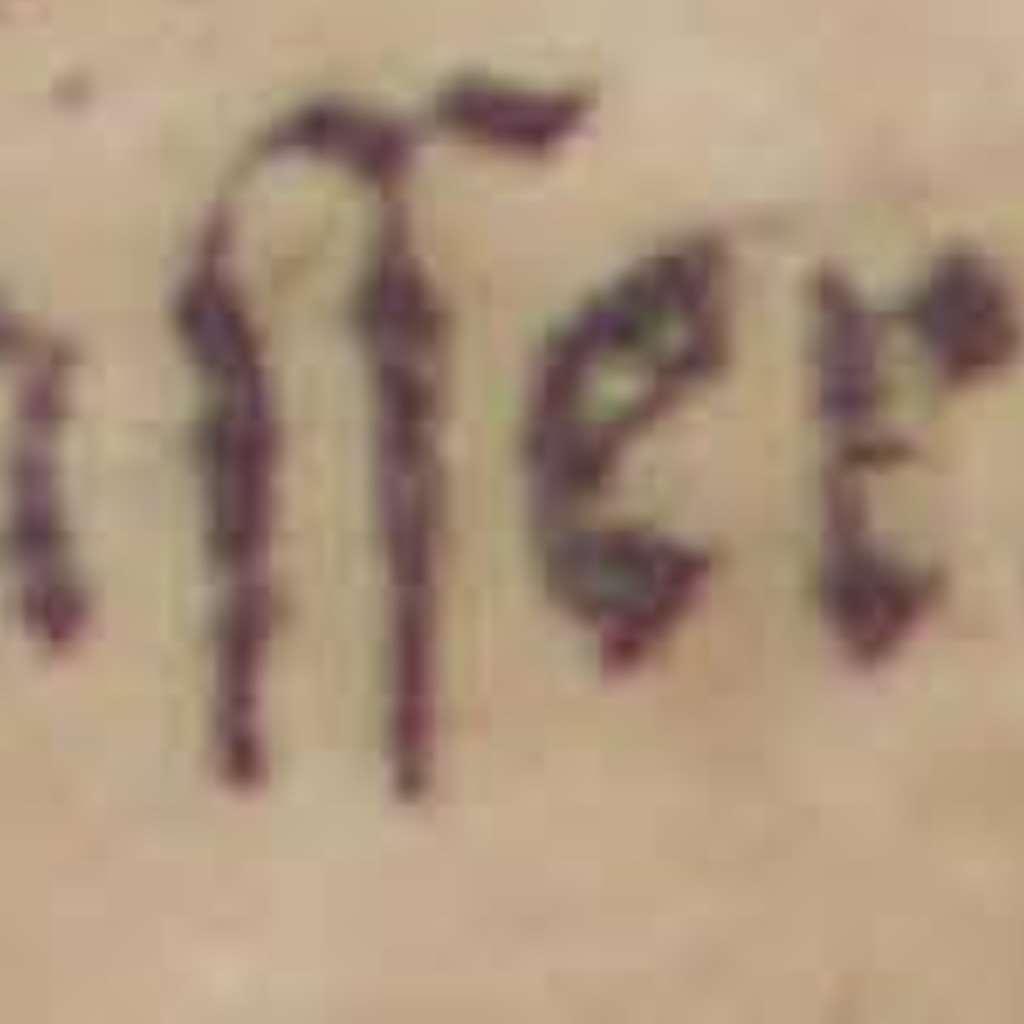 ſſer